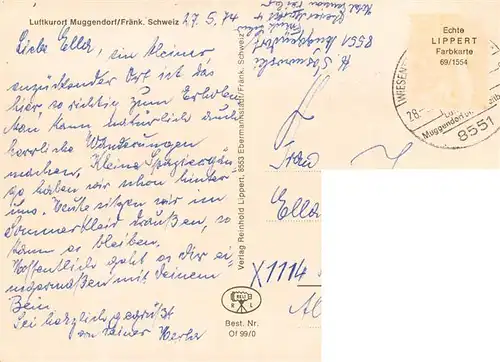 Luftkurort Muggendorf/Fränk. Schweiz
27.5.74
Liebe Ella, ein kleiner
entzückender Ort ist das
hier, so richtig zum Erholen.
Man kann natürlich auch
herrliche Wanderungen
machen. Kleine Spaziergän-
ge haben wir schon hinter
uns. Heute sitzen wir im
Sommerkleid draußen, so
kann es bleiben.
Hoffentlich geht es dir ei-
nigermaßen mit deinem
Bein
Sei herzlich gegrüßt
von deiner Herta
8551 Muggendorf
Verlag Reinhold Lippert, 8553 Ebermannstadt/Fränk. Schweiz
Frau
Ella
X1114
Best. Nr.
Of 99/0
Echte
LIPPERT
Farbkarte
69/1554
28.
Muggendorf
8551